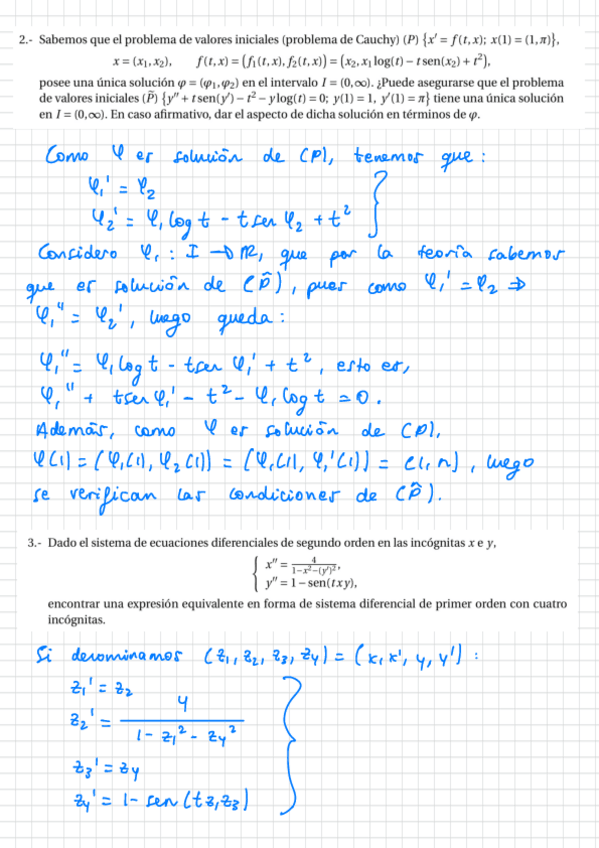 2.- Sabemos que el problema de valores iniciales (problema de Cauchy) (P) {x′ = f(t,x); x(1) = (1,π)},
x = (x₁,x₂), f(t,x) = (f₁(t,x), f₂(t,x)) = (x₂, x₁log(t) − t sen(x₂) + t²),
posee una única solución φ = (φ₁,φ₂) en el intervalo I = (0,∞). ¿Puede asegurarse que el problema
de valores iniciales (P̃) {y″ + t sen(y′) − t² − y log(t) = 0; y(1) = 1, y′(1) = π} tiene una única solución
en I = (0,∞). En caso afirmativo, dar el aspecto de dicha solución en términos de φ.
Como φ es solución de (P), tenemos que:
φ₁' = φ₂
φ₂' = φ₁ log t - t sen φ₂ + t²
Considero φ₁ : I → ℝ, que por la teoría sabemos
que es solución de (P̃), pues como φ₁' = φ₂ ⇒
φ₁'' = φ₂', luego queda:
φ₁'' = φ₁ log t - t sen φ₁' + t², esto es,
φ₁'' + t sen φ₁' - t² - φ₁ log t = 0.
Además, como φ es solución de (P),
φ(1) = (φ₁(1), φ₂(1)) = (φ₁(1), φ₁'(1)) = (1, π), luego
se verifican las condiciones de (P̃).
3.- Dado el sistema de ecuaciones diferenciales de segundo orden en las incógnitas x e y,
x″ = 4/(1−x²−(y′)²),
y″ = 1 − sen(txy),
encontrar una expresión equivalente en forma de sistema diferencial de primer orden con cuatro
incógnitas.
Si denominamos (z₁, z₂, z₃, z₄) = (x, x', y, y') :
z₁' = z₂
z₂' = 4/(1 - z₁² - z₄²)
z₃' = z₄
z₄' = 1 - sen (t z₁ z₃)